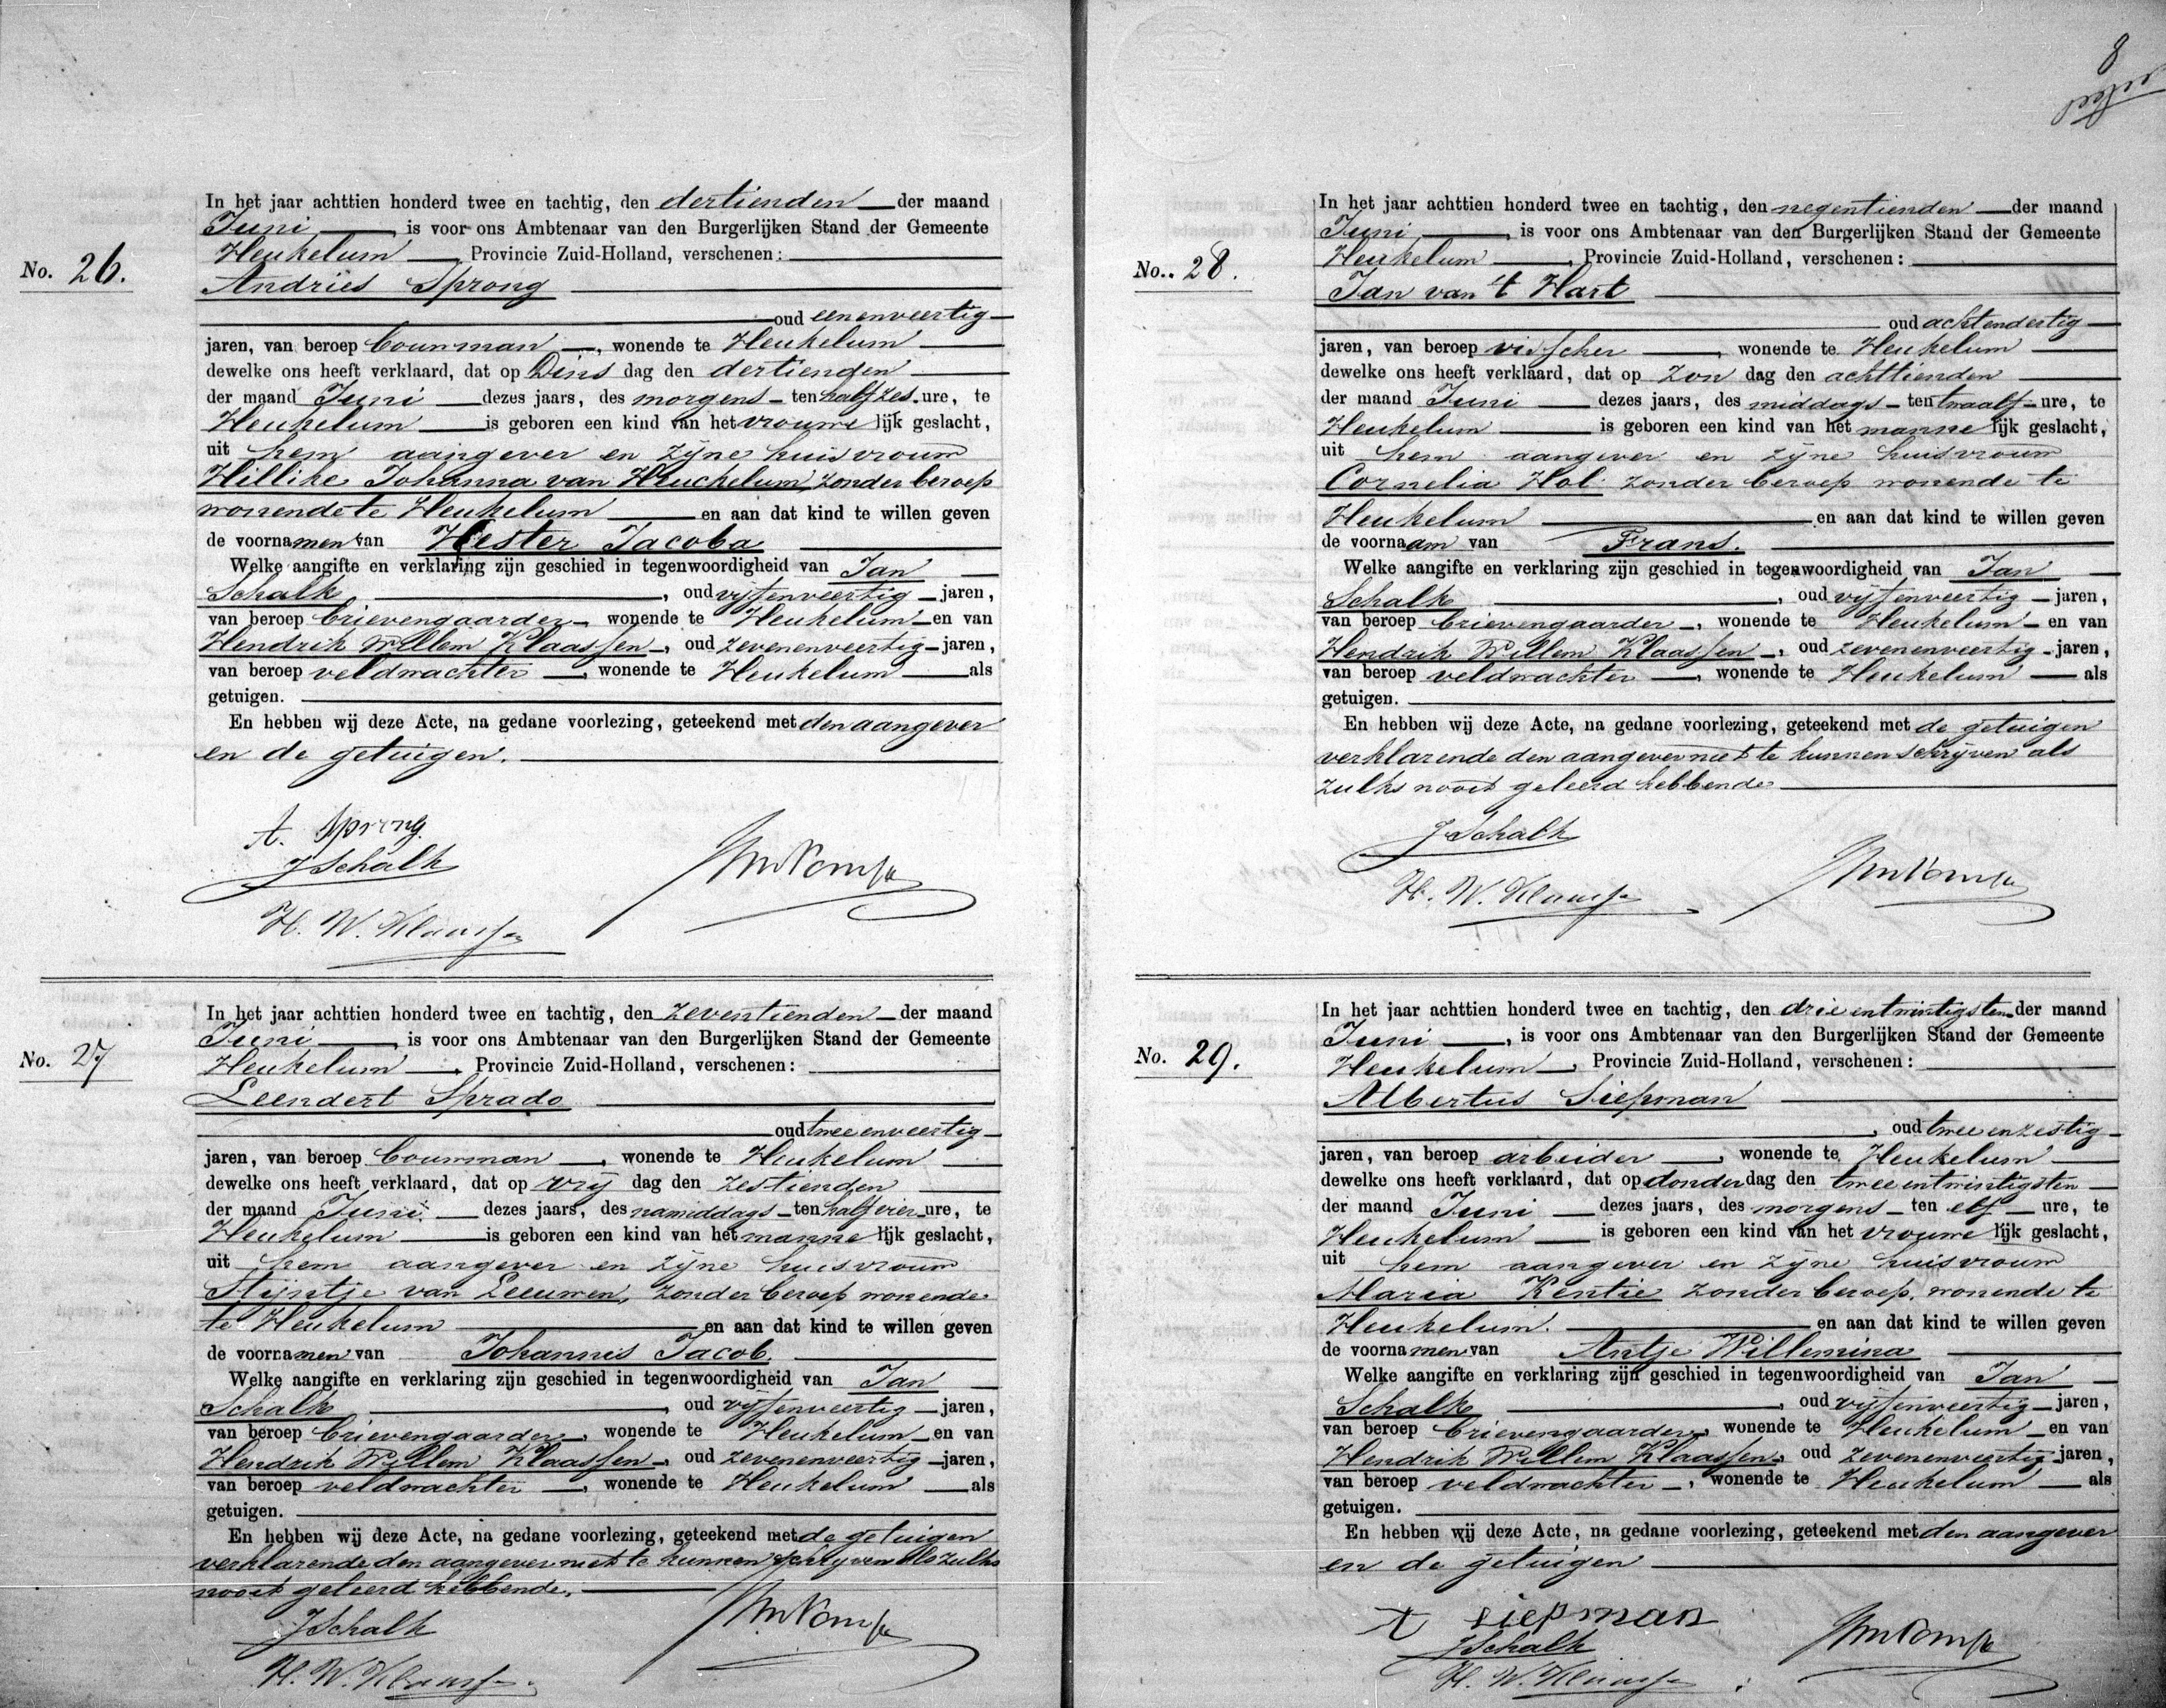 No. 26.
In het jaar achttien honderd twee en tachtig, den dertienden der maand
Juni, is voor ons Ambtenaar van den Burgerlijken Stand der Gemeente
Heukelum, Provincie Zuid-Holland, verschenen:
Andries Sprong
oud eenenveertig
jaren, van beroep bouwman, wonende te Heukelum
dewelke ons heeft verklaard, dat op Dins dag den dertienden
der maand Juni dezes jaars, des morgens ten half zes ure, te
Heukelum is geboren een kind van het vrouwe lijk geslacht,
uit hem aangever en zijne huisvrouw
Hillike Johanna van Heuchelum, zonder beroep
wonende te Heukelum en aan dat kind te willen geven
de voornamen van Hester Jacoba
Welke aangifte en verklaring zijn geschied in tegenwoordigheid van Jan
Schalk, oud vijfenveertig jaren,
van beroep brievengaarder, wonende te Heukelum en van
Hendrik Willem Klaassen, oud zevenenveertig jaren,
van beroep veldwachter, wonende te Heukelum als
getuigen.
En hebben wij deze Acte, na gedane voorlezing, geteekend met den aangever
en de getuigen.
A. Sprong.
J Schalk
H. W. Klaassen
No. 27
In het jaar achttien honderd twee en tachtig, den zeventienden der maand
Juni, is voor ons Ambtenaar van den Burgerlijken Stand der Gemeente
Heukelum, Provincie Zuid-Holland, verschenen:
Leendert Sprado
oud tweeenveertig
jaren, van beroep bouwman, wonende te Heukelum
dewelke ons heeft verklaard, dat op vrij dag den zestienden
der maand Juni dezes jaars, des namiddags ten half vier ure, te
Heukelum is geboren een kind van het manne lijk geslacht,
uit hem aangever en zijne huisvrouw
Stijntje van Leeuwen, zonder beroep wonende
te Heukelum en aan dat kind te willen geven
de voornamen van Johannis Jacob.
Welke aangifte en verklaring zijn geschied in tegenwoordigheid van Jan
Schalk, oud vijfenveertig jaren,
van beroep brievengaarder, wonende te Heukelum en van
Hendrik Willem Klaassen, oud zevenenveertig jaren,
van beroep veldwachter, wonende te Heukelum als
getuigen.
En hebben wij deze Acte, na gedane voorlezing, geteekend met de getuigen
verklarende den aangever niet te kunnen schrijven als zulks
nooit geleerd hebbende.
J Schalk
H. W. Klaassen
8
No. 28.
In het jaar achttien honderd twee en tachtig, den negentienden der maand
Juni, is voor ons Ambtenaar van den Burgerlijken Stand der Gemeente
Heukelum, Provincie Zuid-Holland, verschenen:
Jan van 't Hart
oud achtendertig
jaren, van beroep visscher, wonende te Heukelum
dewelke ons heeft verklaard, dat op Zon dag den achttienden
der maand Juni dezes jaars, des middags ten twaalf ure, te
Heukelum is geboren een kind van het manne lijk geslacht,
uit hem aangever en zijne huisvrouw
Cornelia Hol zonder beroep wonende te
Heukelum en aan dat kind te willen geven
de voornaam van Frans.
Welke aangifte en verklaring zijn geschied in tegenwoordigheid van Jan
Schalk, oud vijfenveertig jaren,
van beroep brievengaarder, wonende te Heukelum en van
Hendrik Willem Klaassen, oud zevenenveertig jaren,
van beroep veldwachter, wonende te Heukelum als
getuigen.
En hebben wij deze Acte, na gedane voorlezing, geteekend met de getuigen
verklarende den aangever niet te kunnen schrijven als
zulks nooit geleerd hebbende
J Schalk
H. W. Klaassen
No. 29.
In het jaar achttien honderd twee en tachtig, den drieentwintigsten der maand
Juni, is voor ons Ambtenaar van den Burgerlijken Stand der Gemeente
Heukelum, Provincie Zuid-Holland, verschenen:
Albertus Siepman
, oud tweeenzestig
jaren, van beroep arbeider, wonende te Heukelum
dewelke ons heeft verklaard, dat op donder dag den tweeentwintigsten
der maand Juni dezes jaars, des morgens ten elf ure, te
Heukelum is geboren een kind van het vrouwe lijk geslacht,
uit hem aangever en zijne huisvrouw
Maria Kentie zonder beroep, wonende te
Heukelum. en aan dat kind te willen geven
de voornamen van Antje Willemina
Welke aangifte en verklaring zijn geschied in tegenwoordigheid van Jan
Schalk, oud vijfenveertig jaren,
van beroep brievengaarder, wonende te Heukelum en van
Hendrik Willem Klaassen, oud zevenenveertig jaren,
van beroep veldwachter, wonende te Heukelum als
getuigen.
En hebben wij deze Acte, na gedane voorlezing, geteekend met den aangever
en de getuigen
A Siepman
J Schalk
H. W. Klaassen